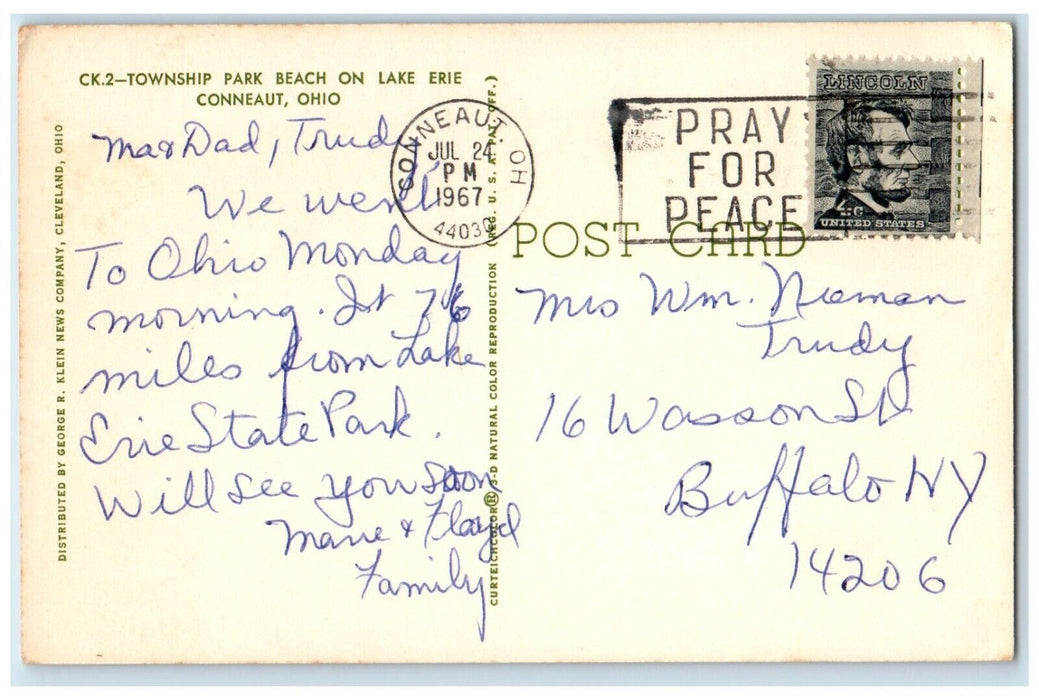 CK.2—TOWNSHIP PARK BEACH ON LAKE ERIE
CONNEAUT, OHIO
Ma & Dad, Trudy
We went
To Ohio Monday
morning. It 76
miles from Lake
Erie State Park.
Will see you soon
Marie & Floyd
Family
DISTRIBUTED BY GEORGE R. KLEIN NEWS COMPANY, CLEVELAND, OHIO
CURTEICHCOLOR® 3-D NATURAL COLOR REPRODUCTION (REG. U. S. A. PAT. OFF.)
CONNEAUT, OH
JUL 24
PM
1967
44030
PRAY
FOR
PEACE
LINCOLN
4c
UNITED STATES
POST CARD
Mrs Wm. Nieman
Trudy
16 Wasson St
Buffalo NY
14206